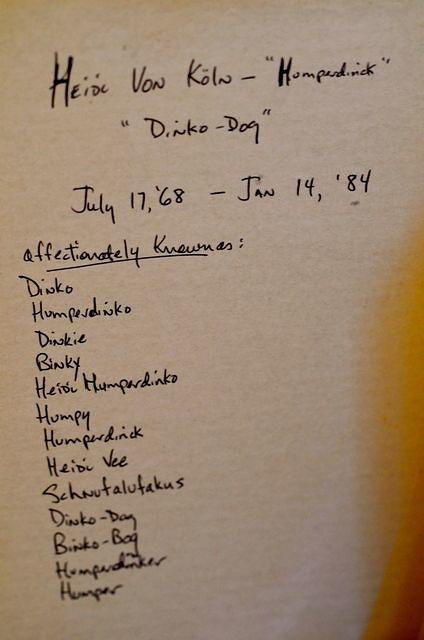 Heidi Von Köln - "Humperdinck"
"Dinko-Dog"
July 17, '68 - Jan 14, '84
Affectionately Known as:
Dinko
Humperdinko
Dinkie
Binky
Heidi Humperdinko
Humpy
Humperdinck
Heidi Vee
Schnutalutakus
Dinko-Dog
Binko-Bog
Humperdinker
Humper